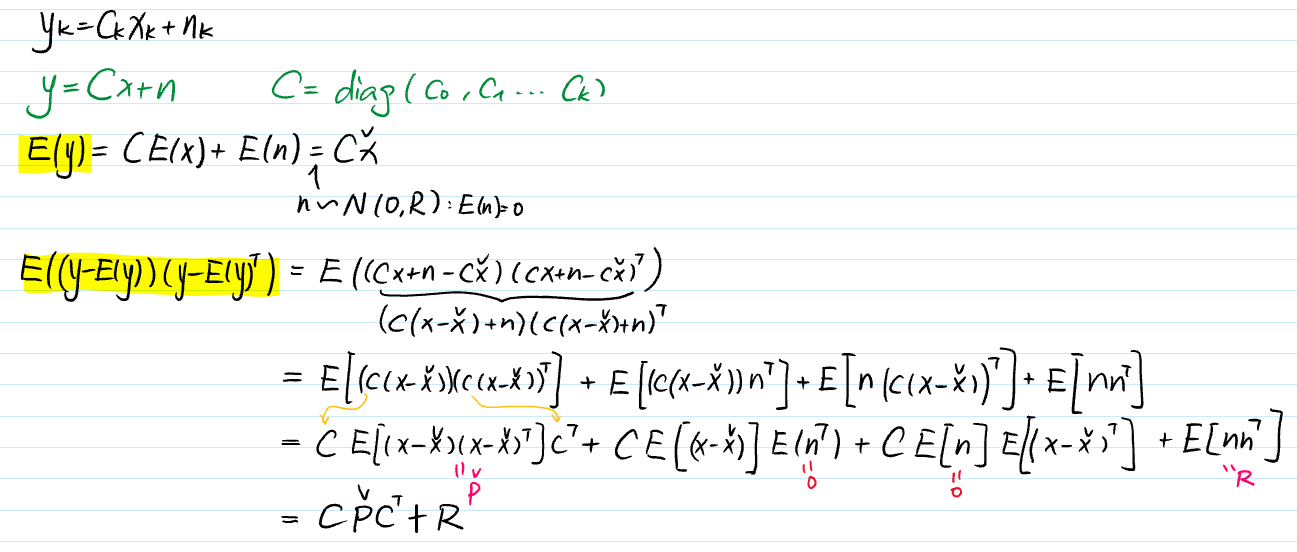 yₖ=Cₖxₖ+nₖ
y=Cx+n C= diag(C₀, C₁ ... Cₖ)
E(y)= CE(x)+ E(n) = Cx̌
↑
n ~ N(0,R): E(n)=0
E((y-E(y))(y-E(y)ᵀ) = E((Cx+n-Cx̌)(Cx+n-Cx̌)ᵀ)
(C(x-x̌)+n)(C(x-x̌)+n)ᵀ
= E[(C(x-x̌))(C(x-x̌))ᵀ] + E[(C(x-x̌))nᵀ] + E[n(C(x-x̌))ᵀ] + E[nnᵀ]
= C E[(x-x̌)(x-x̌)ᵀ]Cᵀ + C E[(x-x̌)] E(nᵀ) + C E[n] E[(x-x̌)ᵀ] + E[nnᵀ]
" P̌ " 0 " 0 " R
= CP̌Cᵀ + R